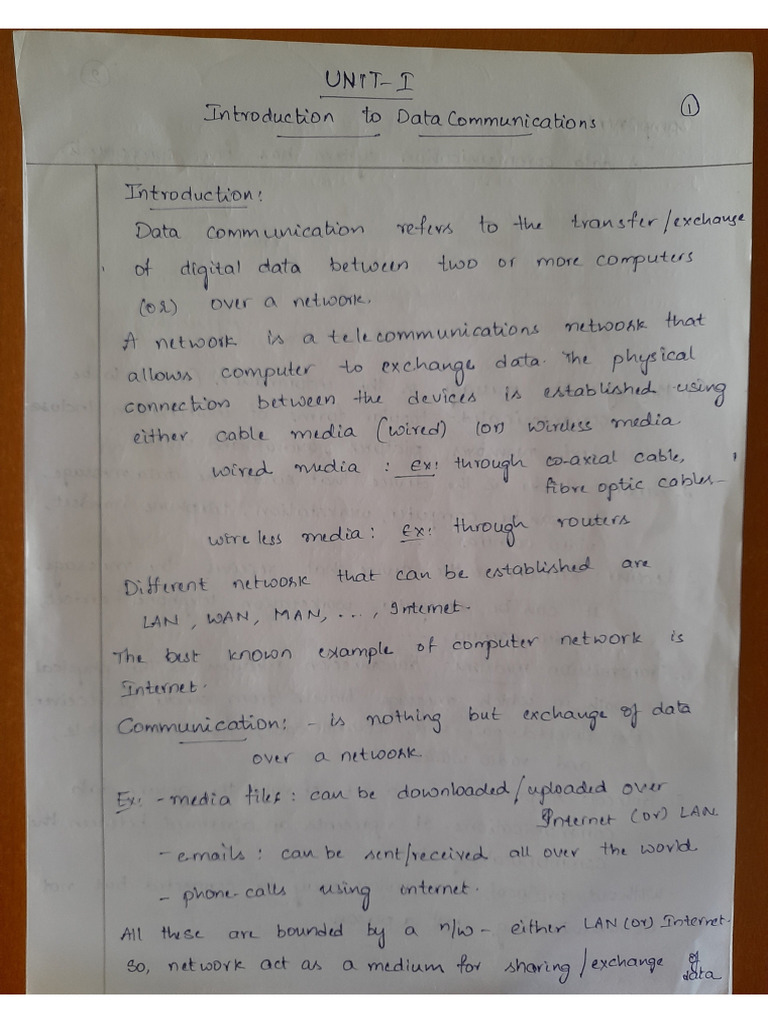 UNIT-I
①
Introduction to Data Communications
Introduction:
Data communication refers to the transfer/exchange
of digital data between two or more computers
(or) over a network.
A network is a telecommunications network that
allows computer to exchange data. The physical
connection between the devices is established using
either cable media (wired) (or) wireless media.
wired media : Ex: through co-axial cable,
fibre optic cables
wireless media: Ex: through routers
Different network that can be established are
LAN, WAN, MAN, ..., Internet.
The best known example of computer network is
Internet.
Communication: - is nothing but exchange of data
over a network.
Ex: - media files: can be downloaded/uploaded over
Internet (or) LAN.
- emails: can be sent/received all over the world
- phone-calls using internet.
All these are bounded by a n/w - either LAN (or) Internet.
So, network act as a medium for sharing/exchange of
data